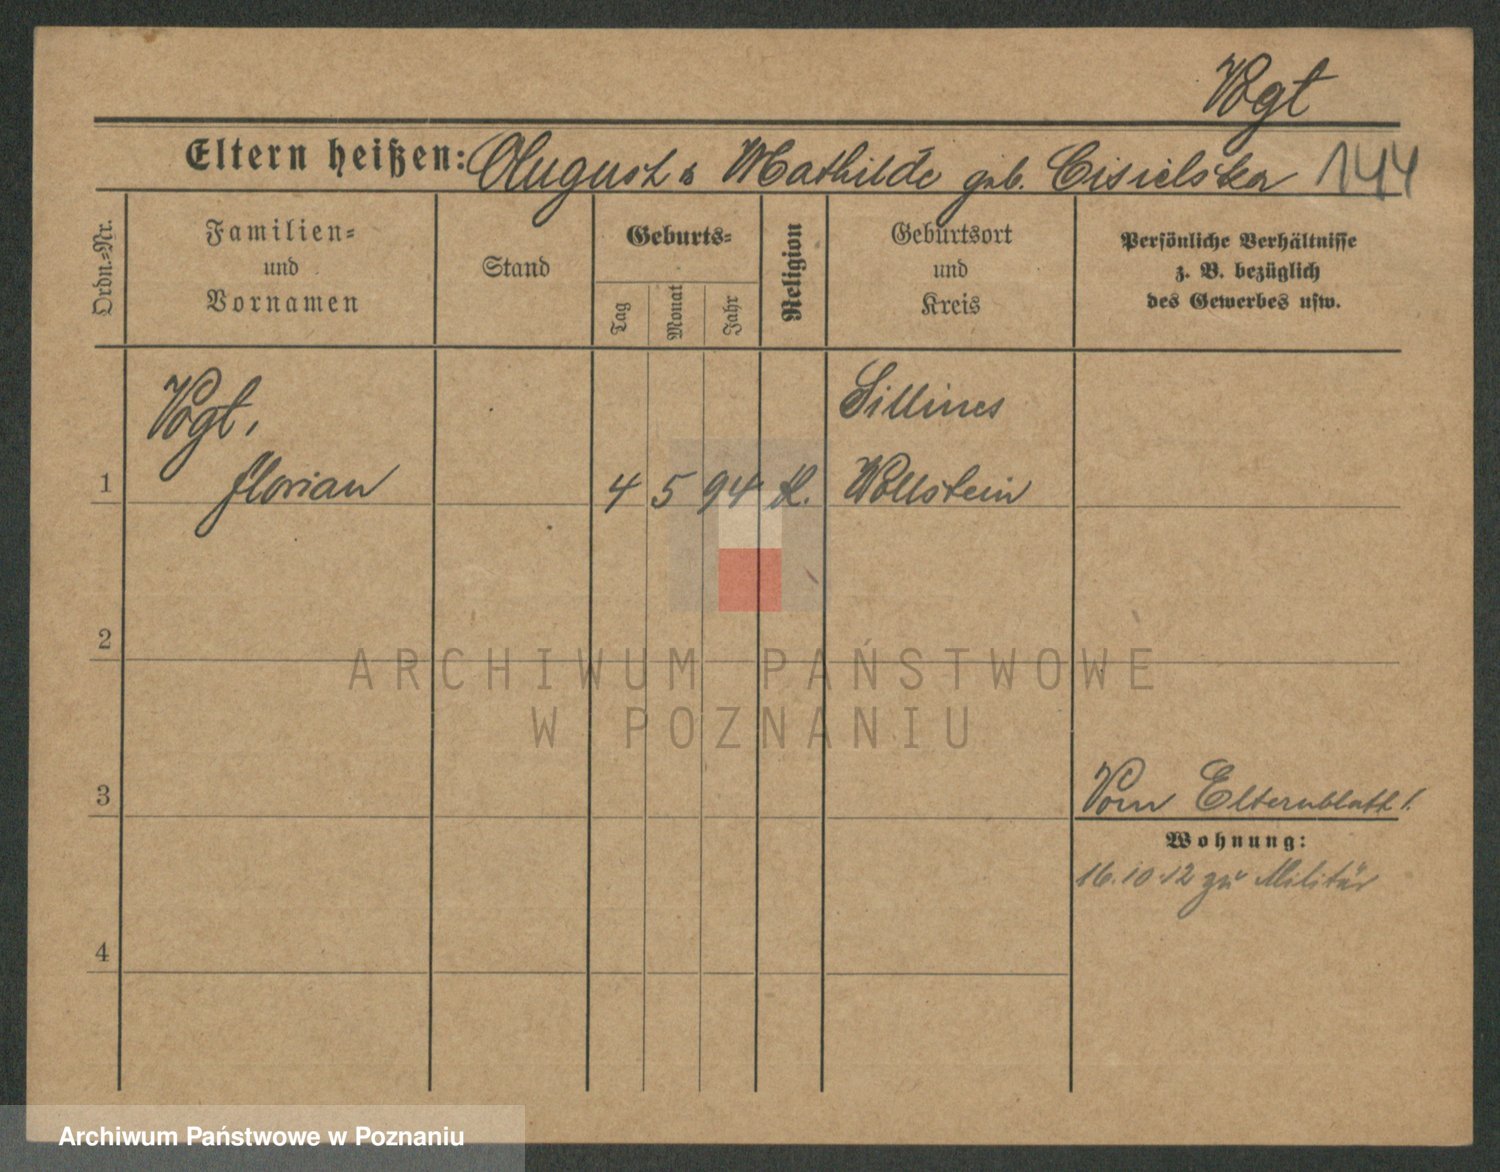 Vogt
Eltern heißen: August & Mathilde geb. Cisielska 144
Ordn.-Nr.
Familien-
und
Vornamen
Stand
Geburts-
Tag
Monat
Jahr
Religion
Geburtsort
und
Kreis
Persönliche Verhältnisse
z. B. bezüglich
des Gewerbes usw.
Vogt,
1 Florian 4 5 94 K. Wollstein
2
ARCHIWUM PAŃSTWOWE
W POZNANIU
3 Vom Elternblatt!
Wohnung:
16.10.12 zu Militär
4
Archiwum Państwowe w Poznaniu